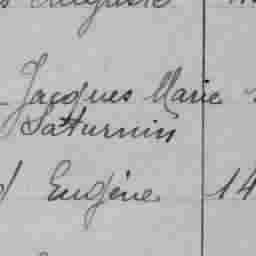 Auguste
Jacques Marie
Saturnin
Eugène 14